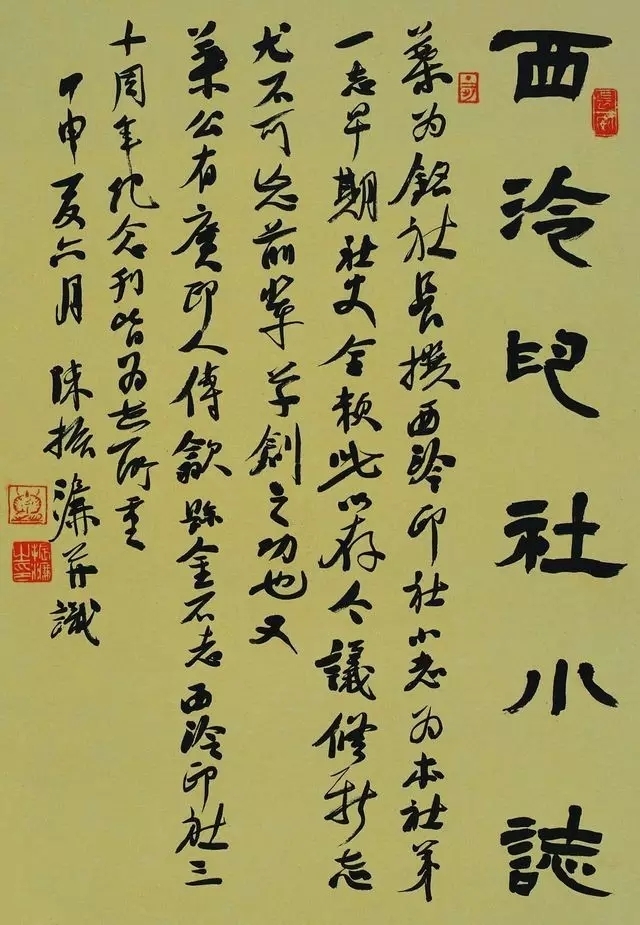 西泠印社小誌
葉为銘社長撰西泠印社小志为本社第
一志早期社史全赖此以存今議修新志
尤不可忘前辈草創之功也又
葉公有廣印人傳歙縣金石志西泠印社三
十周年纪念刊皆为世所重
甲申夏六月 陳振濂并識